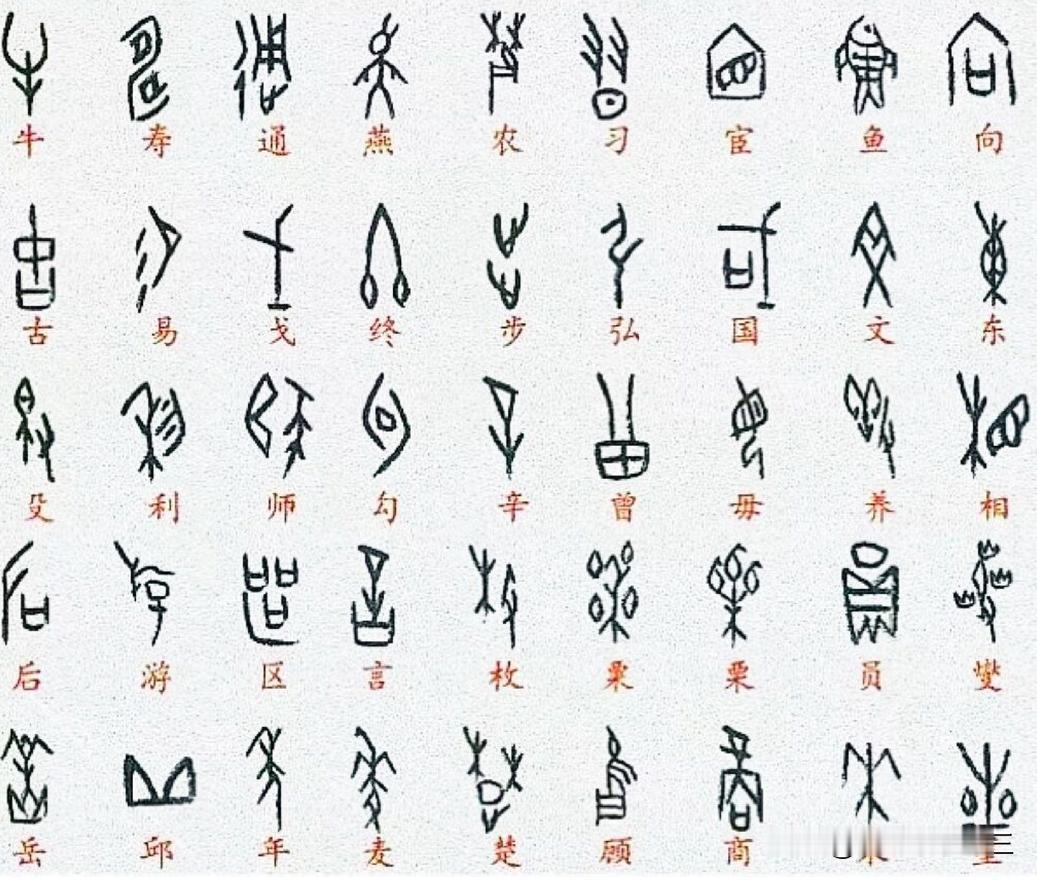 牛 寿 通 燕 农 习 宦 鱼 向
古 易 戈 终 步 弘 国 文 东
殳 利 师 勾 辛 曾 毋 养 相
后 游 区 言 枚 粟 栗 员 燮
岳 邱 年 麦 楚 顾 商